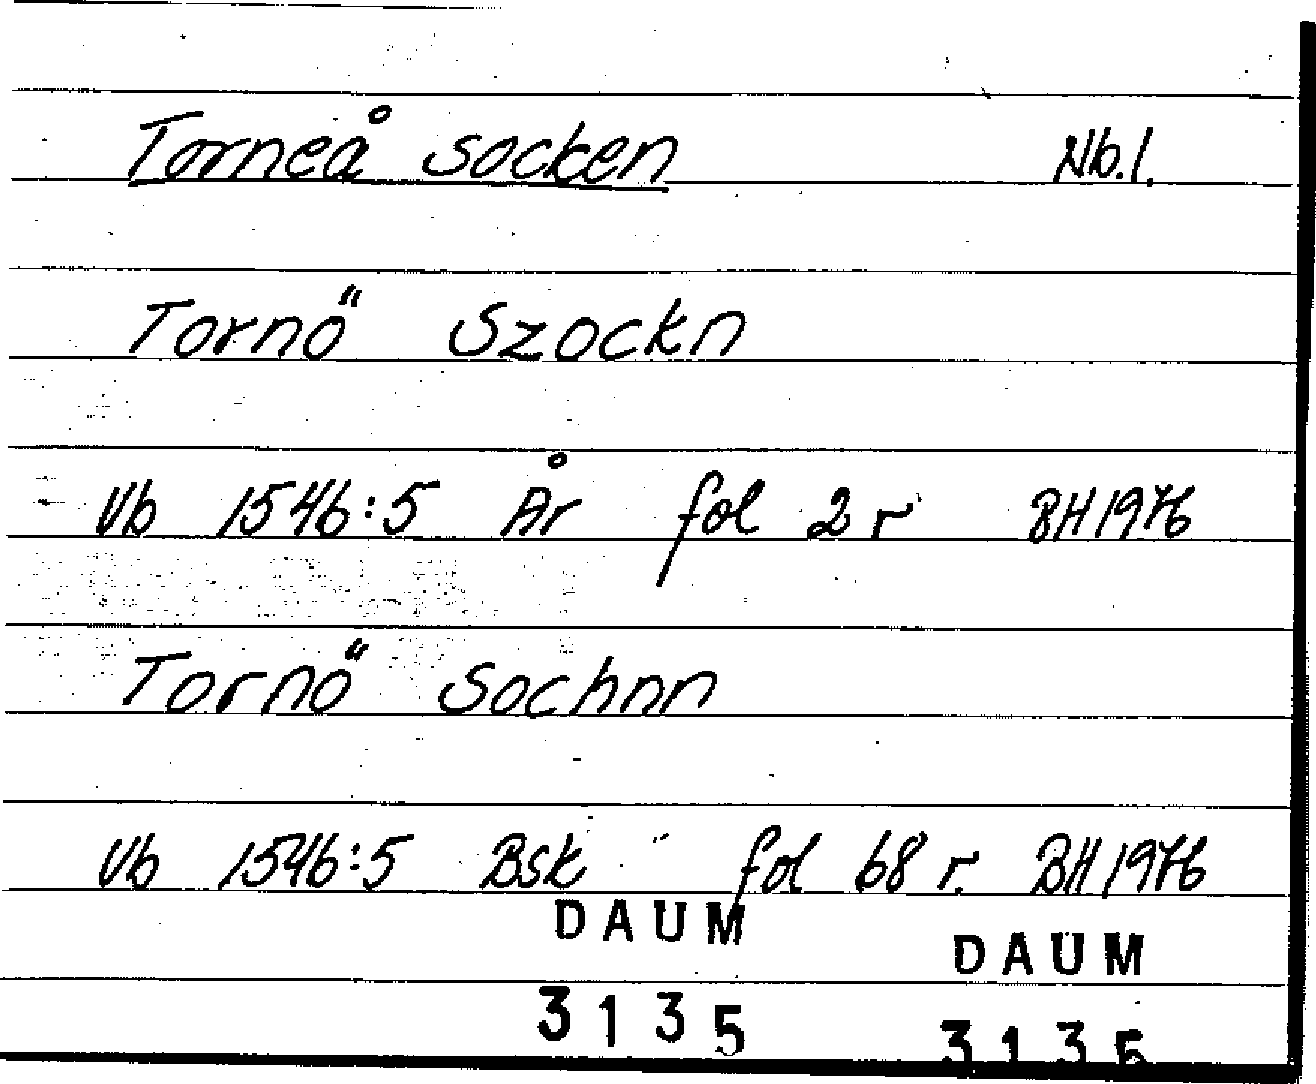 Torneå socken Nb.l.
Tornö Szockn
Vb 1546:5 År fol 2 r BH 1976
Tornö Sochnn
Vb 1546:5 Bsk fol 68 r. BH 1976
DAUM
DAUM
3135
3135